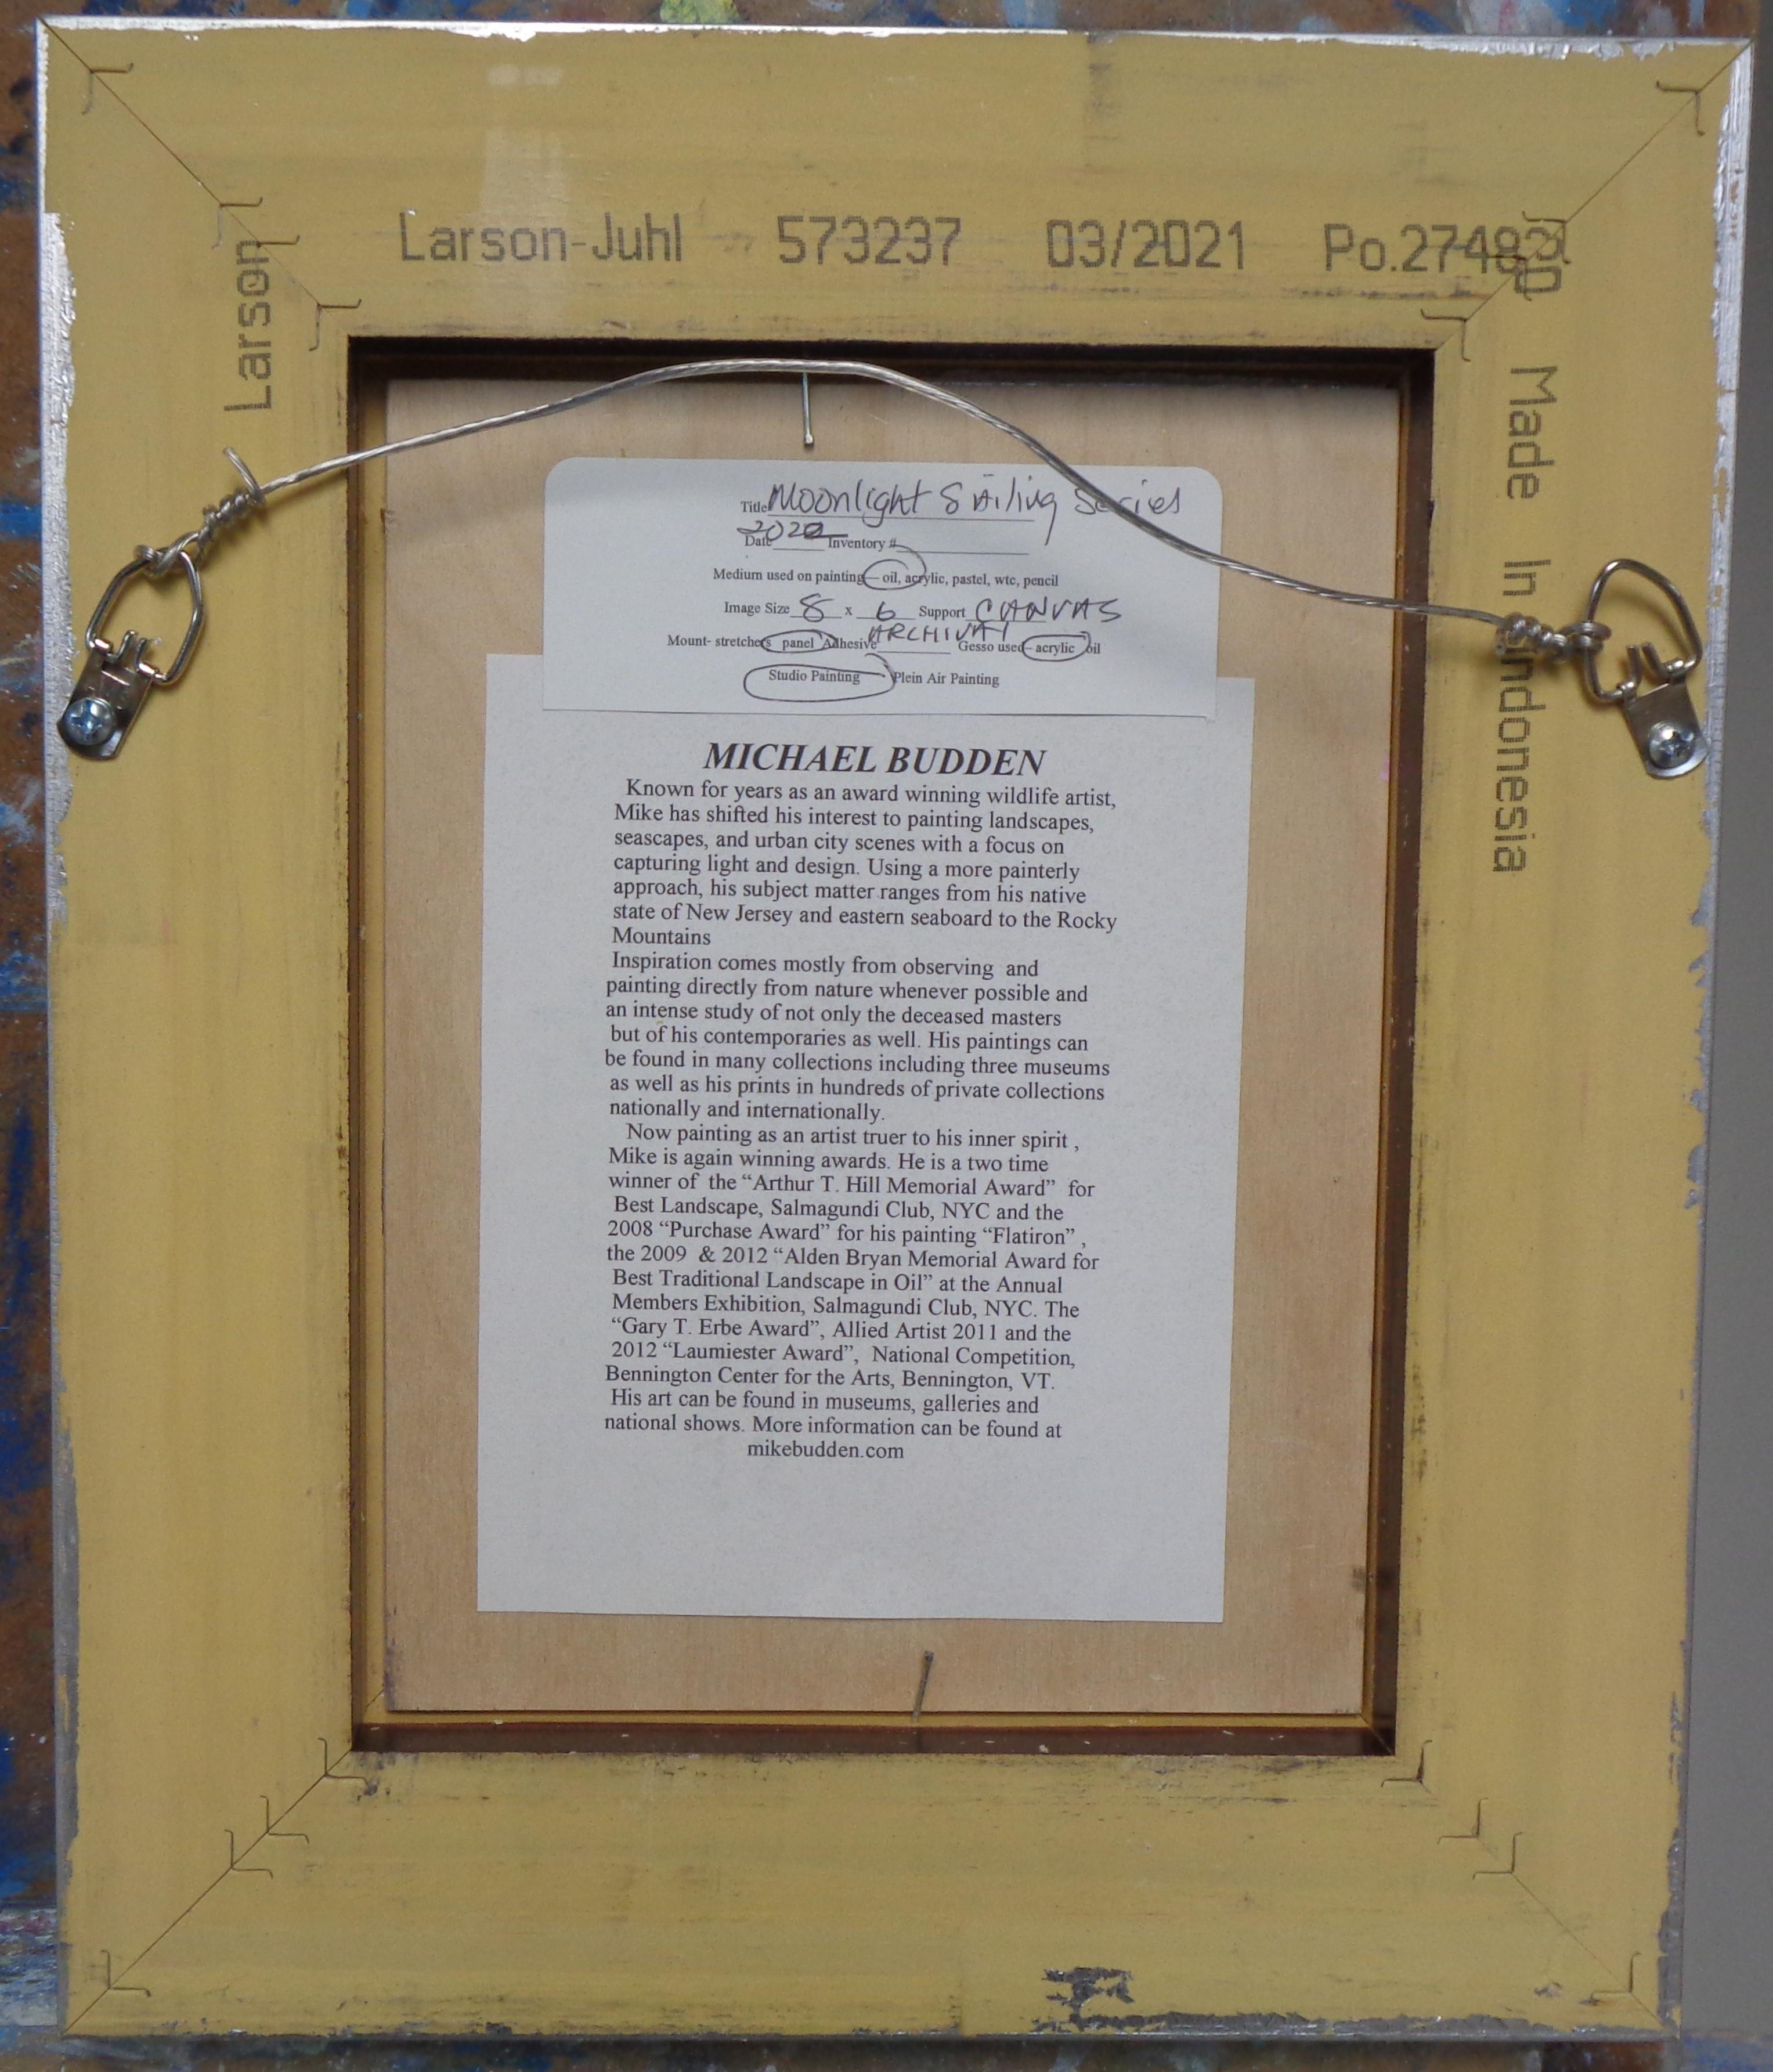 Larson-Juhl 573237 03/2021 Po.27482
Larson
Made In Indonesia
Title Moonlight Sailing Series
Date 2022 Inventory #
Medium used on painting– oil, acrylic, pastel, wtc, pencil
Image Size 8 x 6 Support CANVAS
Mount- stretchers panel Adhesive ARCHIVAL Gesso used– acrylic oil
Studio Painting Plein Air Painting
MICHAEL BUDDEN
Known for years as an award winning wildlife artist,
Mike has shifted his interest to painting landscapes,
seascapes, and urban city scenes with a focus on
capturing light and design. Using a more painterly
approach, his subject matter ranges from his native
state of New Jersey and eastern seaboard to the Rocky
Mountains
Inspiration comes mostly from observing and
painting directly from nature whenever possible and
an intense study of not only the deceased masters
but of his contemporaries as well. His paintings can
be found in many collections including three museums
as well as his prints in hundreds of private collections
nationally and internationally.
Now painting as an artist truer to his inner spirit ,
Mike is again winning awards. He is a two time
winner of the “Arthur T. Hill Memorial Award” for
Best Landscape, Salmagundi Club, NYC and the
2008 “Purchase Award” for his painting “Flatiron” ,
the 2009 & 2012 “Alden Bryan Memorial Award for
Best Traditional Landscape in Oil” at the Annual
Members Exhibition, Salmagundi Club, NYC. The
“Gary T. Erbe Award”, Allied Artist 2011 and the
2012 “Laumiester Award”, National Competition,
Bennington Center for the Arts, Bennington, VT.
His art can be found in museums, galleries and
national shows. More information can be found at
mikebudden.com